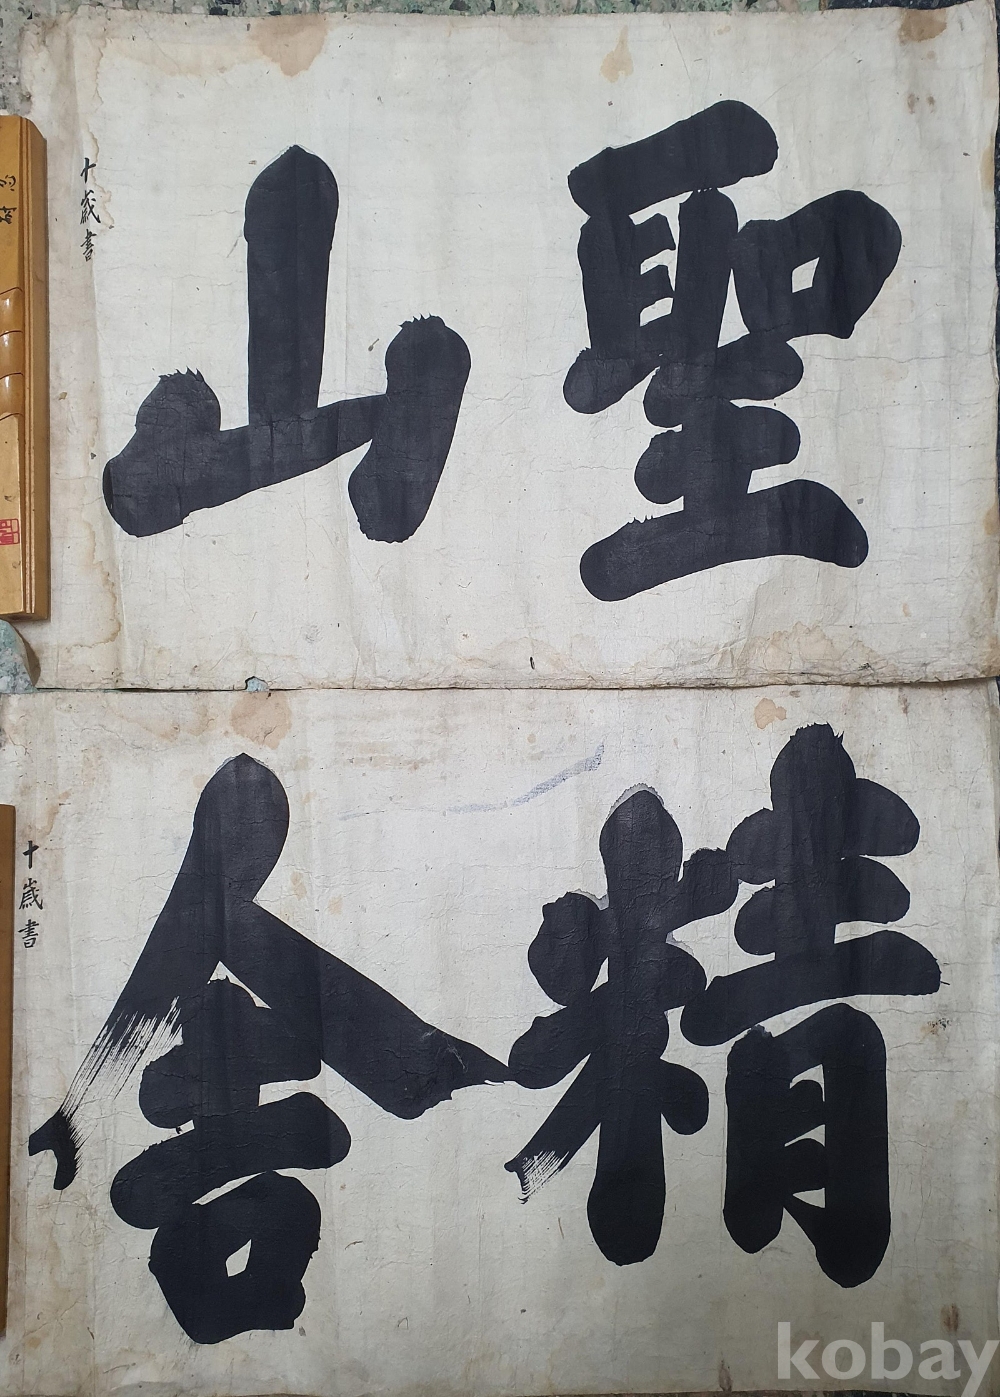 聖山
十歲書
精舍
十歲書
kobay